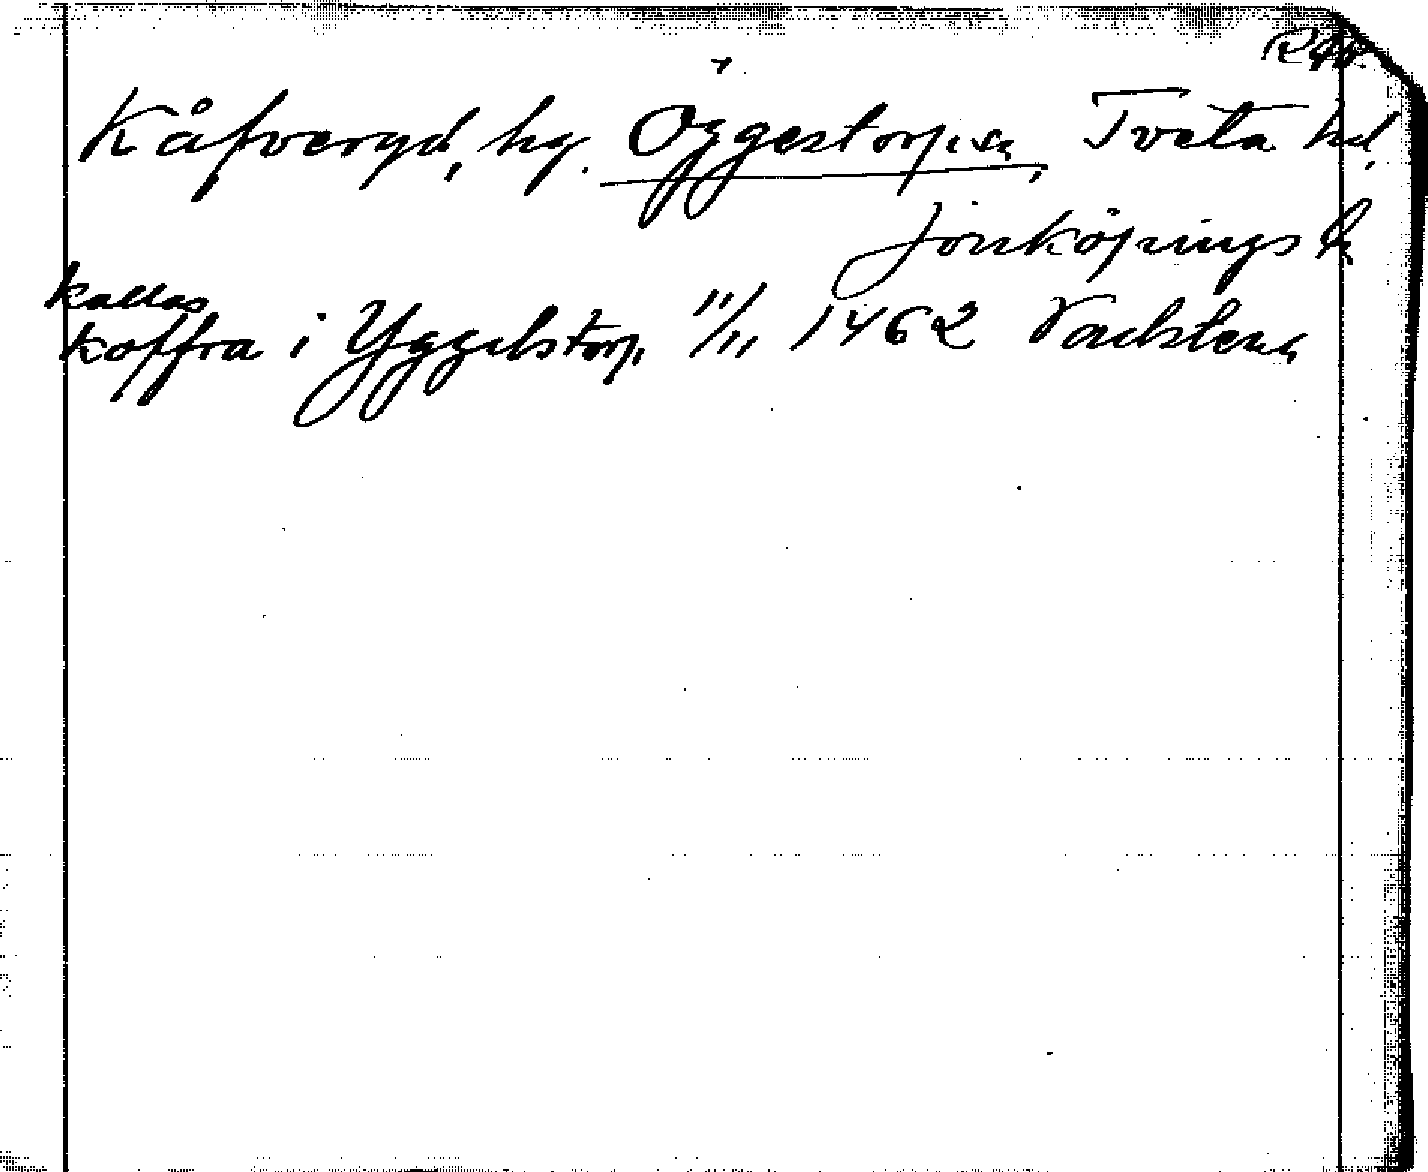 Kåfveryd, hg. Öggestorps sn, Tveta hd,
Jönköpings l
kallas
Koffra i Yggelstorp 11/11 1462 Vadstena